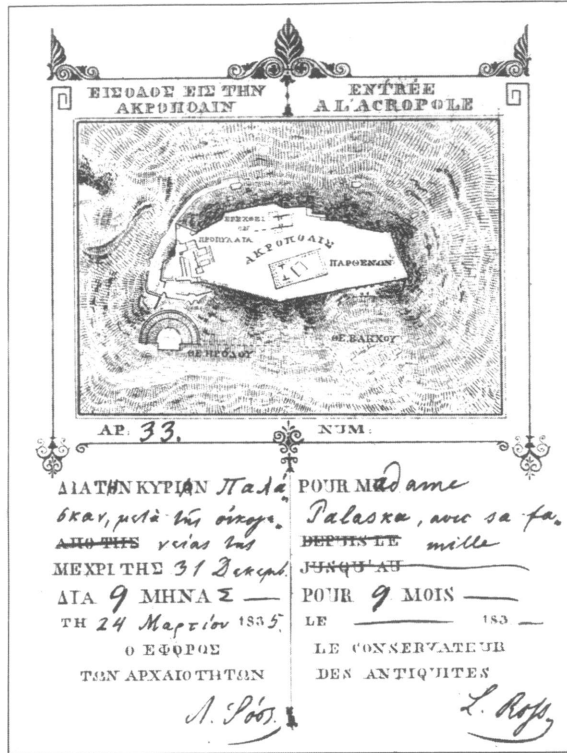 ΕΙΣΟΔΟΣ ΕΙΣ ΤΗΝ
ΑΚΡΟΠΟΛΙΝ
ENTRÉE
A L'ACROPOLE
ΕΡΕΧΘΕΙ
ΟΝ
ΠΡΟΠΥΛΑΙΑ
ΑΚΡΟΠΟΛΙΣ
ΠΑΡΘΕΝΩΝ
ΘΕ.ΗΡΩΔΟΥ
ΘΕ.ΒΑΚΧΟΥ
ΑΡ: 33.
NUM:
ΔΙΑ ΤΗΝ ΚΥΡΙΑΝ Παλά,,
σκαν, μετὰ τῆς οἰκογε,,
ΑΠΟ ΤΗΣ νείας της
ΜΕΧΡΙ ΤΗΣ 31 Δεκεμβ.
ΔΙΑ 9 ΜΗΝΑΣ
ΤΗ 24 Μαρτίου 1835.
Ο ΕΦΟΡΟΣ
ΤΩΝ ΑΡΧΑΙΟΤΗΤΩΝ
Λ. Ῥόσ
POUR Madame
Palaska, avec sa fa,,
DEPUIS LE mille
JUSQU'AU
POUR 9 MOIS
LE 183
LE CONSERVATEUR
DES ANTIQUITES
L. Ross